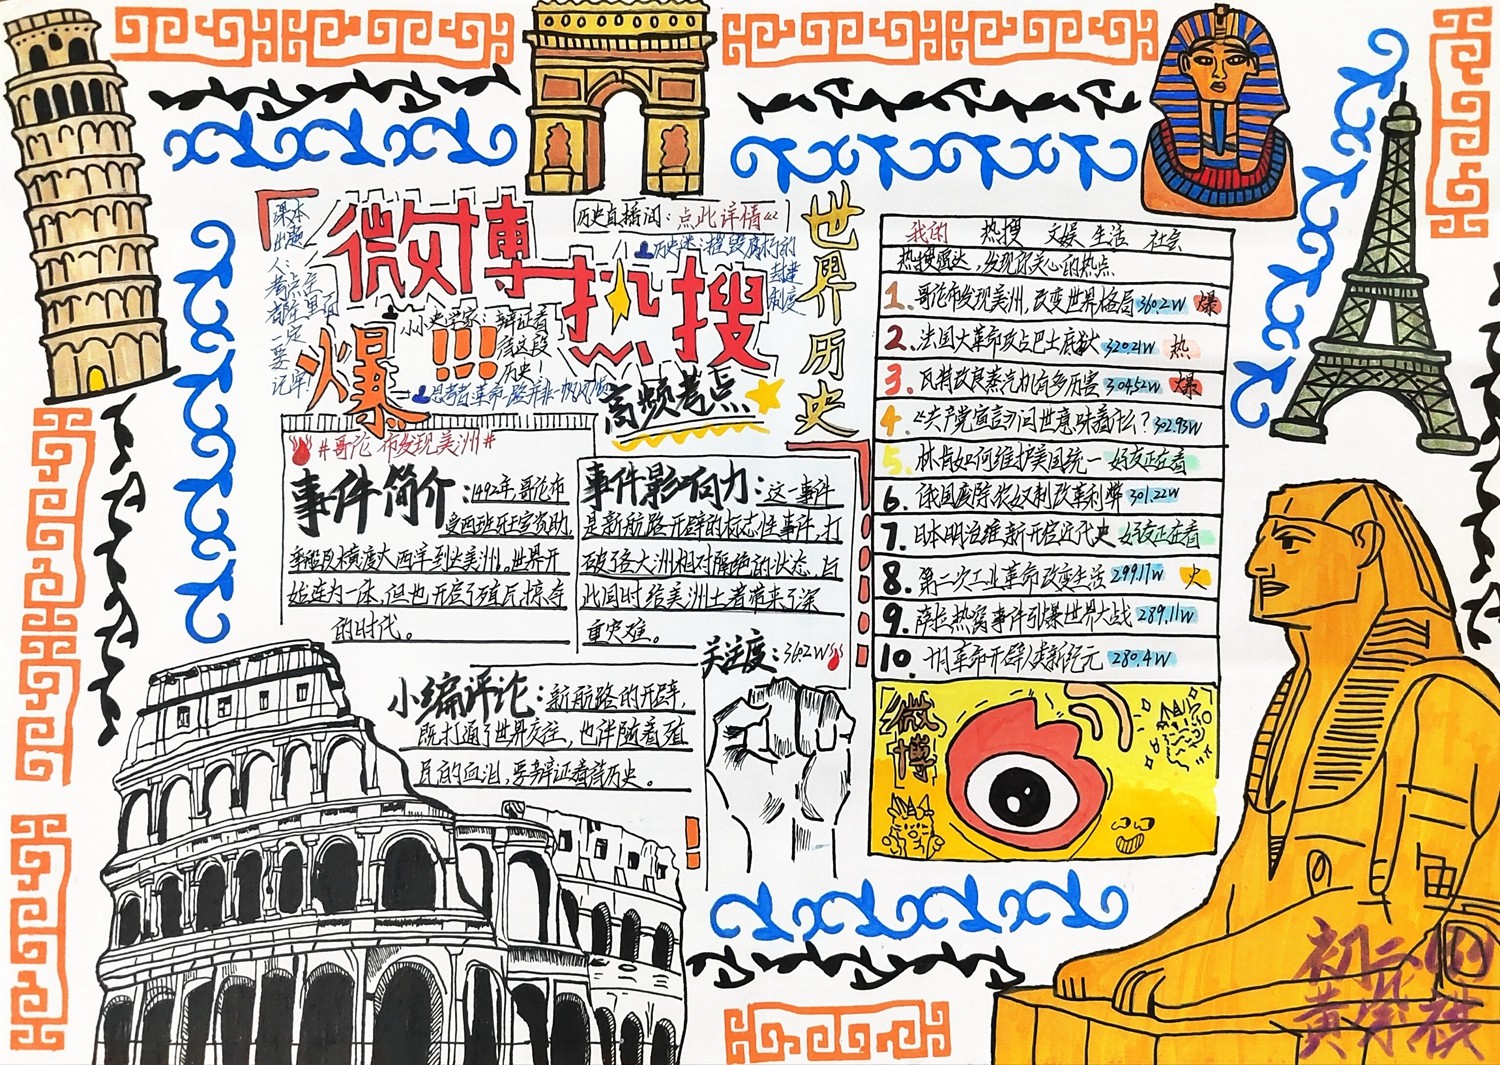 课本
出题
人:
考点在
都在里面
一定
要
记牢!
微博
热搜
爆!!!
历史直播间:点此详情<<
历史迷:摧毁腐朽的
封建
制度
小小史学家:辩证看
待这段
历史!
高频考点
世界历史
#哥伦布发现美洲#
事件简介:1492年,哥伦布
受西班牙王室资助,
率船队横渡大西洋到达美洲。世界开
始连为一体,但也开启了殖民掠夺
的时代。
事件影响力:这一事件
是新航路开辟的标志性事件,打
破了各大洲相对隔绝的状态,与
此同时给美洲土著带来了深
重灾难。
关注度:360.2W
小编评论:新航路的开辟,
既打通了世界交往,也伴随着殖
民的血泪,要辩证看待历史。
我的 热搜 文娱 生活 社会
热搜直达,发现你关心的热点
1.哥伦布发现美洲,改变世界格局 360.2W 爆
2.法国大革命攻占巴士底狱 320.21W 热
3.瓦特改良蒸汽机有多厉害 304.52W 爆
4.《共产党宣言》问世意味着什么? 302.93W
5.林肯如何维护美国统一 好友正在看
6.俄国废除农奴制改革利弊 301.22W
7.日本明治维新开启近代史 好友正在看
8.第二次工业革命改变生活 299.11W 火
9.萨拉热窝事件引爆世界大战 289.11W
10.十月革命开辟人类新纪元 280.4W
微博
初二
黄
祺